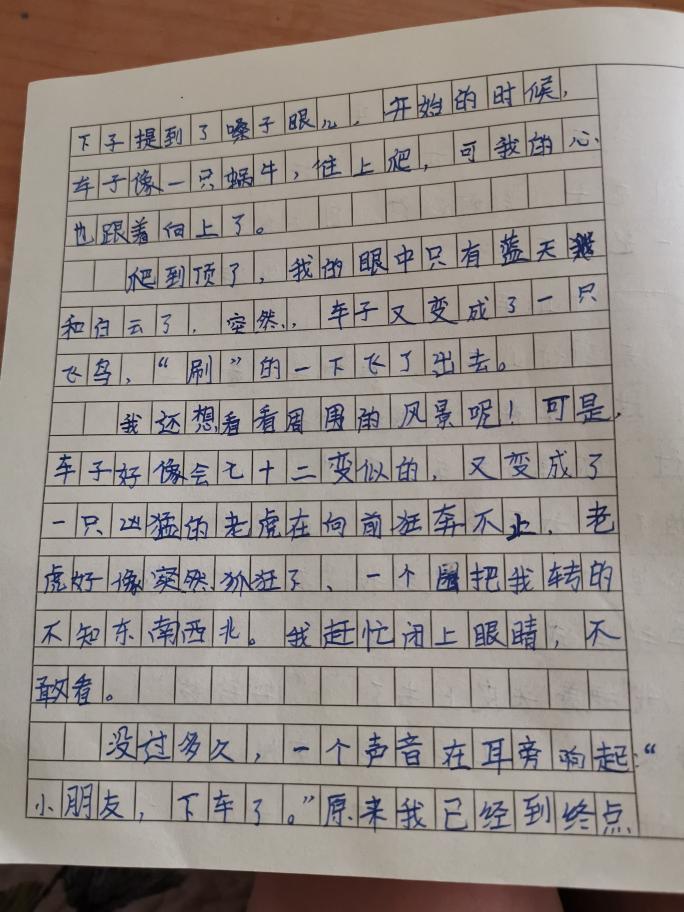 下子提到了嗓子眼儿，开始的时候，
车子像一只蜗牛，往上爬，可我的心
也跟着向上了。
爬到顶了，我的眼中只有蓝天
和白云了．突然，车子又变成了一只
飞鸟，“刷”的一下飞了出去。
我还想看看周围的风景呢！可是，
车子好像会七十二变似的，又变成了
一只凶猛的老虎在向前狂奔不止．老
虎好像突然狐狂了、一个把我转的
不知东南西北。我赶忙闭上眼睛，不
敢看。
没过多久，一个声音在耳旁响起：“
小朋友，下车了。”原来我已经到终点